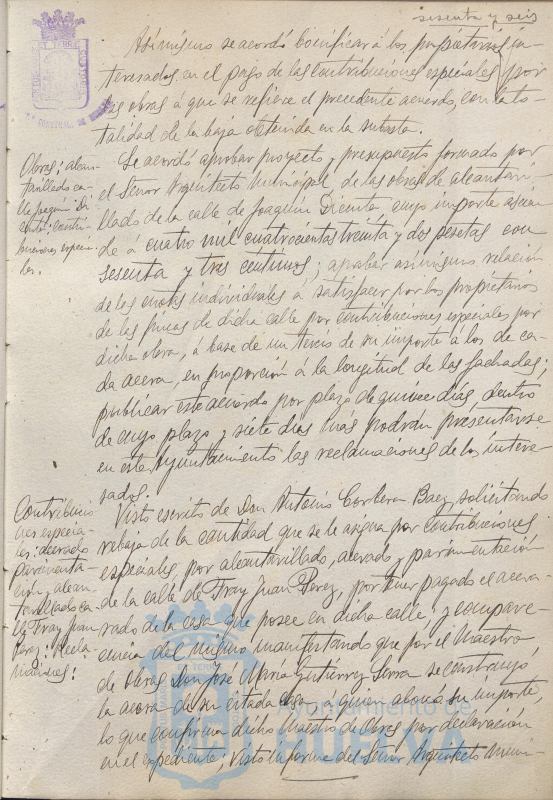 sesenta y seis
Asimismo se acordó bonificar á los propietarios in-
teresados en el pago de las contribuciones especiales por
las obras á que se refiere el precedente acuerdo, con la to-
talidad de la baja obtenida en la subasta.
Obras; alcan-
tarillado ca-
lle Joaquín Di-
centa; contri-
buciones especia-
les.
Se acordó aprobar proyecto y presupuesto formado por
el Señor Arquitecto Municipal de las obras de alcantari-
llado de la calle de Joaquín Dicenta cuyo importe ascien-
de á cuatro mil cuatrocientas treinta y dos pesetas con
sesenta y tres céntimos; aprobar asimismo relación
de las cuotas individuales á satisfacer por los propietarios
de las fincas de dicha calle por contribuciones especiales por
dicha obra, á base de un tercio de su importe á los de ca-
da acera, en proporción á la longitud de las fachadas;
publicar este acuerdo por plazo de quince días, dentro
de cuyo plazo y siete días más podrán presentarse
en este Ayuntamiento las reclamaciones de los intere-
sados.
Contribucio-
nes especia-
les; acerado
pavimenta-
ción, alcan-
tarillado ca-
lle Fray Juan
Perez; recla-
maciones:
Visto escrito de Don Antonio Corbera Baez, solicitando
rebaja de la cantidad que se le asigna por contribuciones
especiales, por alcantarillado, acerado y pavimentación
de la calle de Fray Juan Perez, por tener pagado el acera-
rado de la casa que posee en dicha calle, y compare-
cencia del mismo manifestando que por el Maestro
de Obras Don José María Gutiérrez Serra se construyó
la acera de su citada casa a quien abonó su importe,
lo que confirma dicho Maestro de Obras por declaración
en el expediente; visto informe del Señor Arquitecto Muni-
Ayuntamiento de
HUELVA